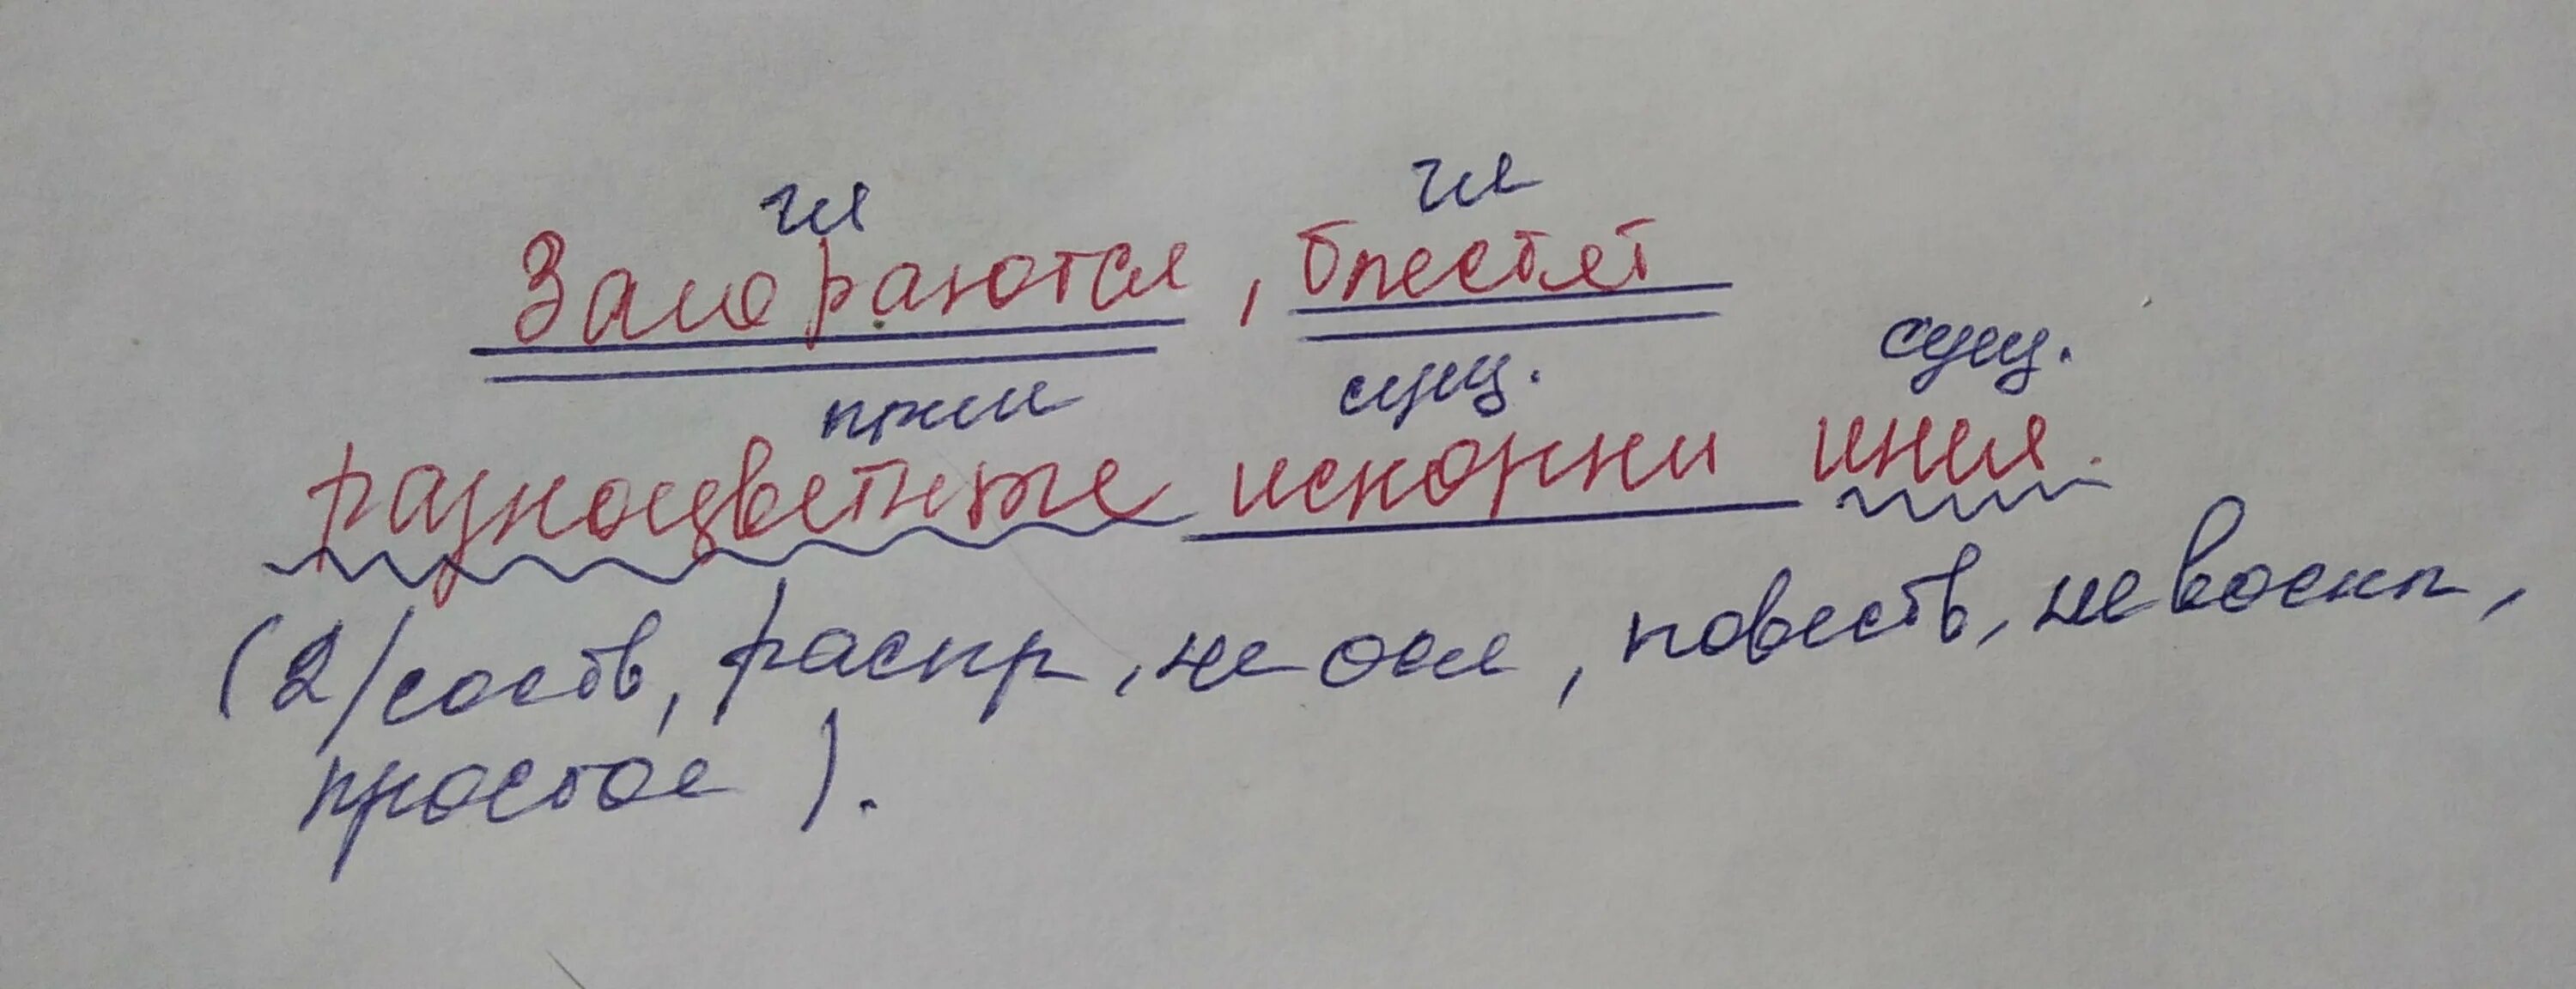 гл гл
Загораются, блестят
прил сущ. сущ.
разноцветные искорки инея.
(2/соств, распр, не осл, повеств, невоскл,
простое).